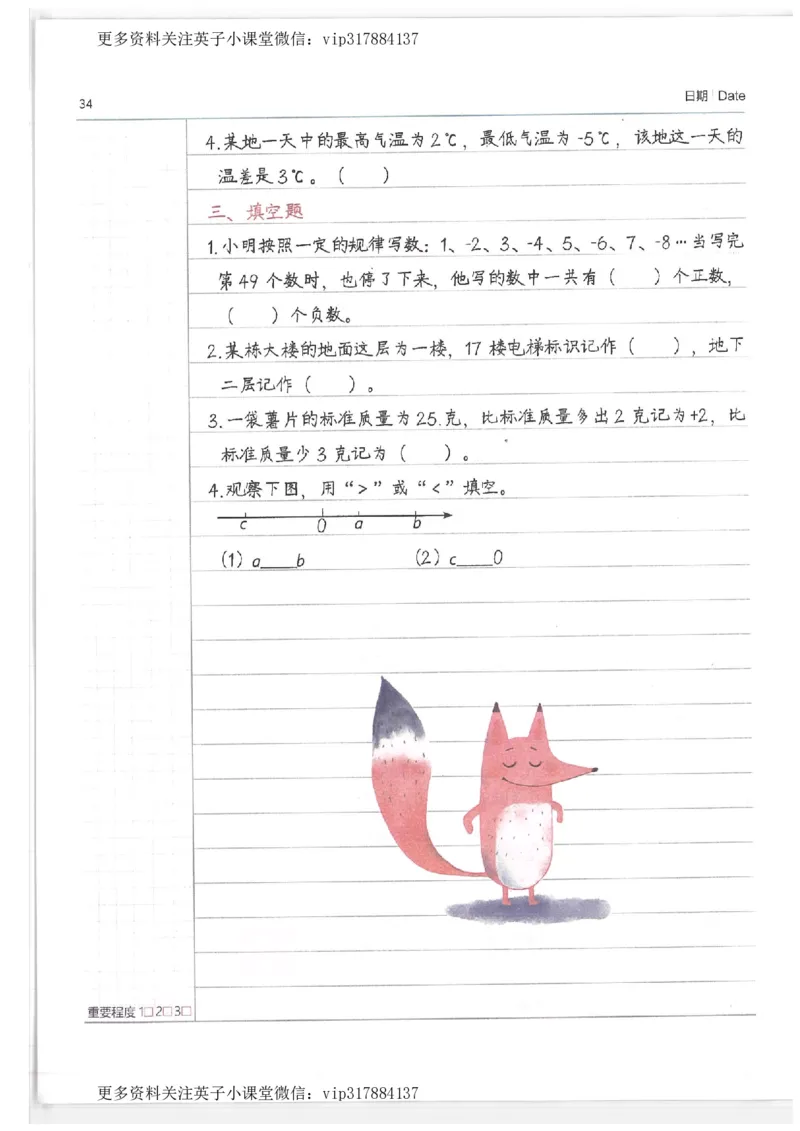 更多资料关注英子小课堂微信：vip317884137
34
日期 Date
4.某地一天中的最高气温为2℃，最低气温为-5℃，该地这一天的
温差是3℃。（ ）
三、填空题
1.小明按照一定的规律写数：1、-2、3、-4、5、-6、7、-8…当写完
第49个数时，也停了下来，他写的数中一共有（ ）个正数，
（ ）个负数。
2.某栋大楼的地面这层为一楼，17楼电梯标识记作（ ），地下
二层记作（ ）。
3.一袋薯片的标准质量为25.克，比标准质量多出2克记为+2，比
标准质量少3克记为（ ）。
4.观察下图，用“>”或“<”填空。
c 0 a b
(1) a____b (2) c____0
重要程度 1□ 2□ 3□
更多资料关注英子小课堂微信：vip317884137